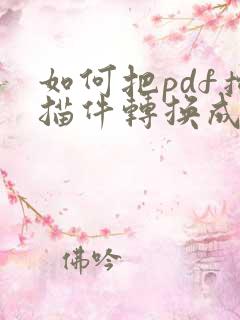 如何把pdf扫
描件轉換成
佛吟